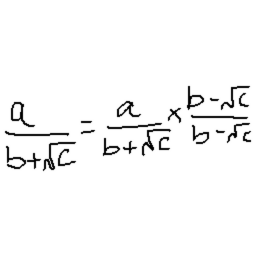 a/(b+√c) = a/(b+√c) × (b-√c)/(b-√c)